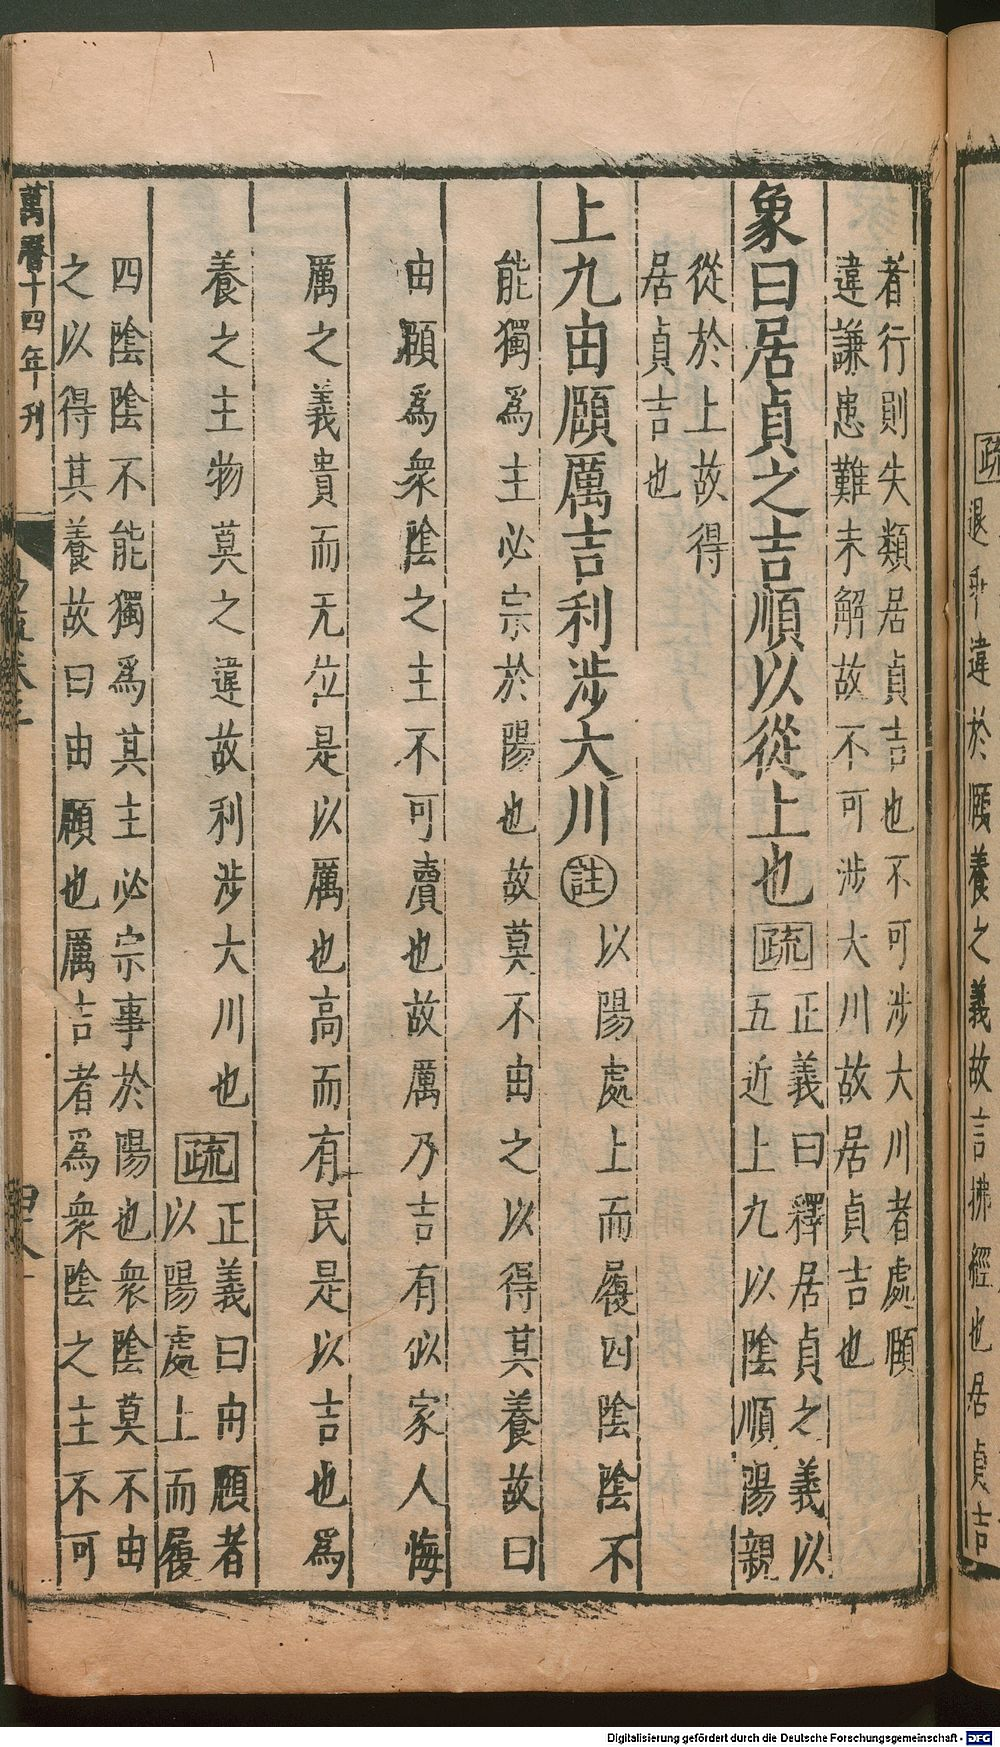 疏
退乖違於頤養之義故言拂經也居貞吉
者行則失類居貞吉也不可涉大川者處頤
違謙患難未解故不可涉大川故居貞吉也
象曰居貞之吉順以從上也疏正義曰釋居貞之義以
五近上九以陰順陽親
從於上故得
居貞吉也
上九由頤厲吉利涉大川註以陽處上而履四陰陰不
能獨爲主必宗於陽也故莫不由之以得其養故曰
由頤爲衆陰之主不可瀆也故厲乃吉有似家人悔
厲之義貴而无位是以厲也高而有民是以吉也爲
養之主物莫之違故利涉大川也疏正義曰由頤者
以陽處上而履
四陰陰不能獨爲其主必宗事於陽也衆陰莫不由
之以得其養故曰由頤也厲吉者爲衆陰之主不可
萬曆十四年刊
Digitalisierung gefördert durch die Deutsche Forschungsgemeinschaft - DFG